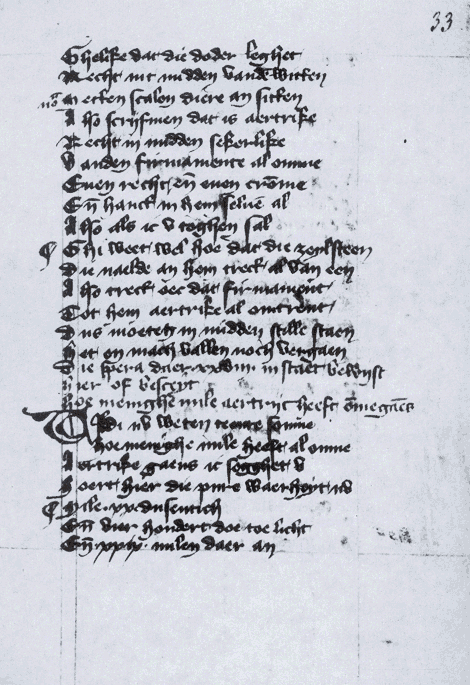 33
Ghelike dat die doder leghet
Recht int midden vandē witten
Mē mecken scalen diere an sitten
Also scrijfmen dat is aertrike
Recht in midden sekerlike
Vanden firmamente al omme
Euen recht eñ euen crōme
Eñ hanct in hem seluē al
Also als ic v toghen sal
¶ Ghi weet wel hoe dat die zeylsteen
Die naelde an hem trect al van een
Also trect oec dat firmamēt
Tot hem aertrike al omtrent
Dus moetet in midden stille staen
Het en mach vallen noch vergaen
Die spera daer xxviii in staet bewijst
hier of bescryt
hoe menighe mile aertrijc heeft ōmegaēs
Wildi nv weten somme
hoe menighe mile heeft al omme
Aertrike gaens ic segghet v
Hoert hier die pure waerheyt nv
¶ Mile .xx. dusentich
Eñ vier hondert doe toe licht
Eñ .xxix. milen daer an